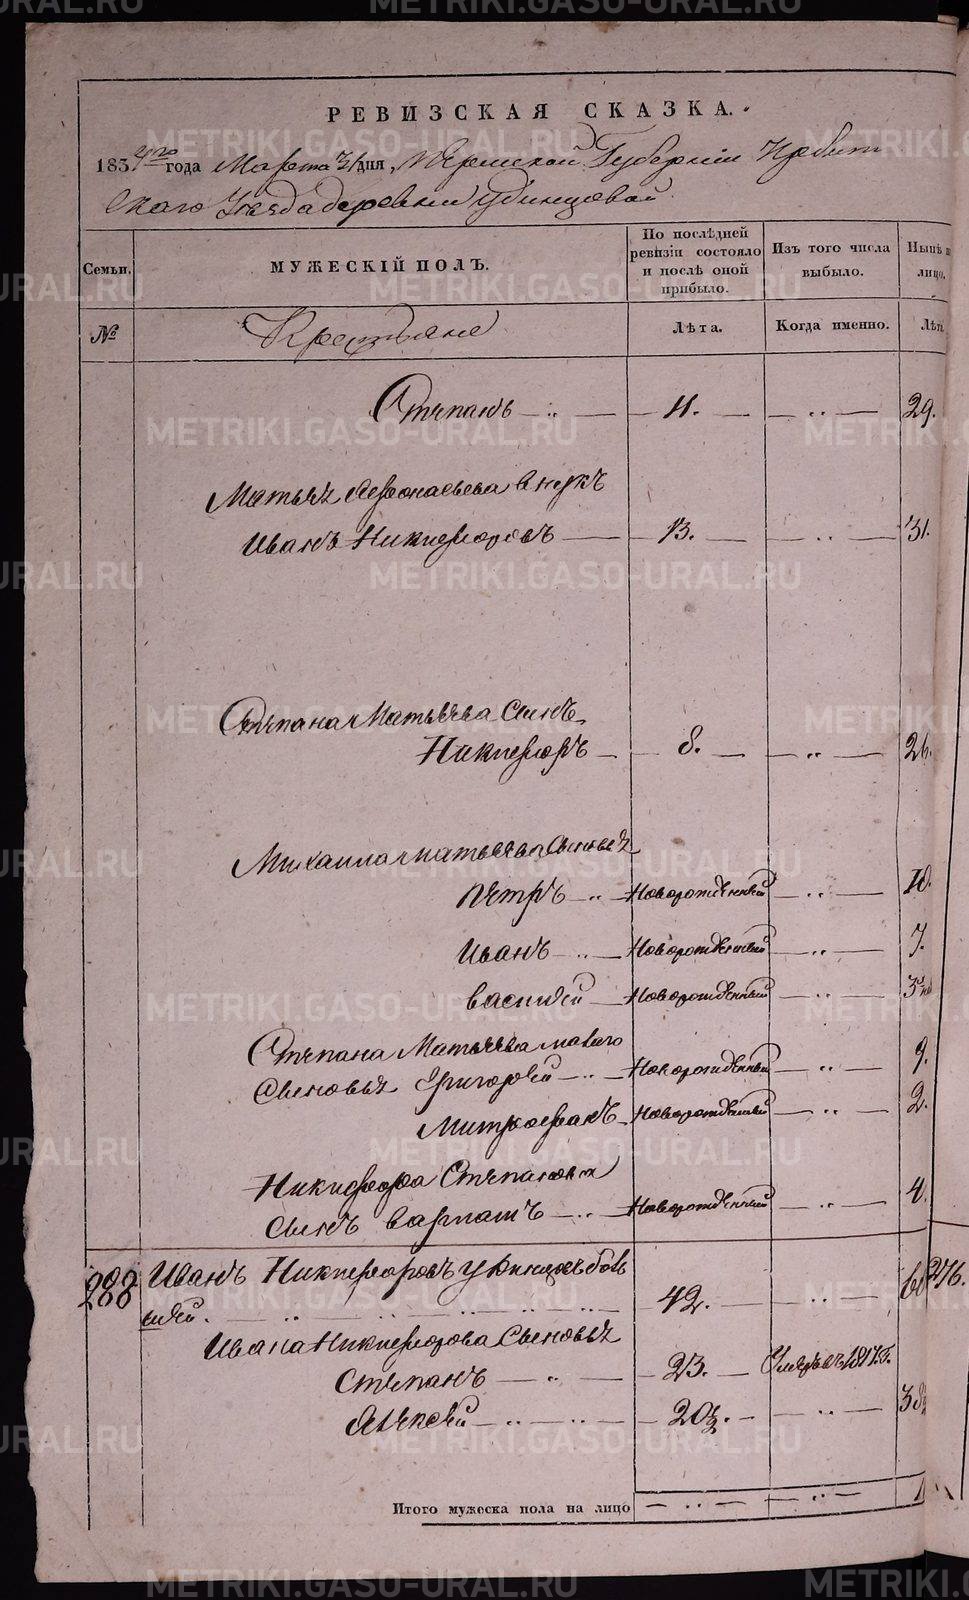 РЕВИЗСКАЯ СКАЗКА.
1834го года Марта 31 дня, Пермской Губернии Ирбит
скаго Уезда деревни Удинцовой
Семьи.
МУЖЕСКІЙ ПОЛЪ.
По послѣдней ревизіи состояло и послѣ оной прибыло.
Изъ того числа выбыло.
Нынѣ н лицо.
№
Крестьяне
Лѣта.
Когда именно.
Лѣт
Степанъ — 11. — 29.
Матвея Афонасьева внукъ
Иванъ Никифоровъ — 13. — 31.
Степана Матвеева Сынъ
Никифоръ — 8. — 26.
Михаила Матвеева Сыновья
Петръ — Новорожденный — 10.
Иванъ — Новорожденный — 7.
Василей — Новорожденный — 3
Степана Матвеева малого
Сыновья Григорей — Новорожденный — 9.
Митрофанъ — Новорожденный — 2.
Никифора Степанова
Сынъ Варламъ — Новорожденный — 4.
288 Иванъ Никифоровъ Удинцовъ боль
шей. — 42. — 60 276.
Ивана Никифорова Сыновья
Степанъ — 23. — Умеръ въ 1817.г.
Алексей — 20½. — 38½
Итого мужеска пола на лицо
METRIKI.GASO-URAL.RU